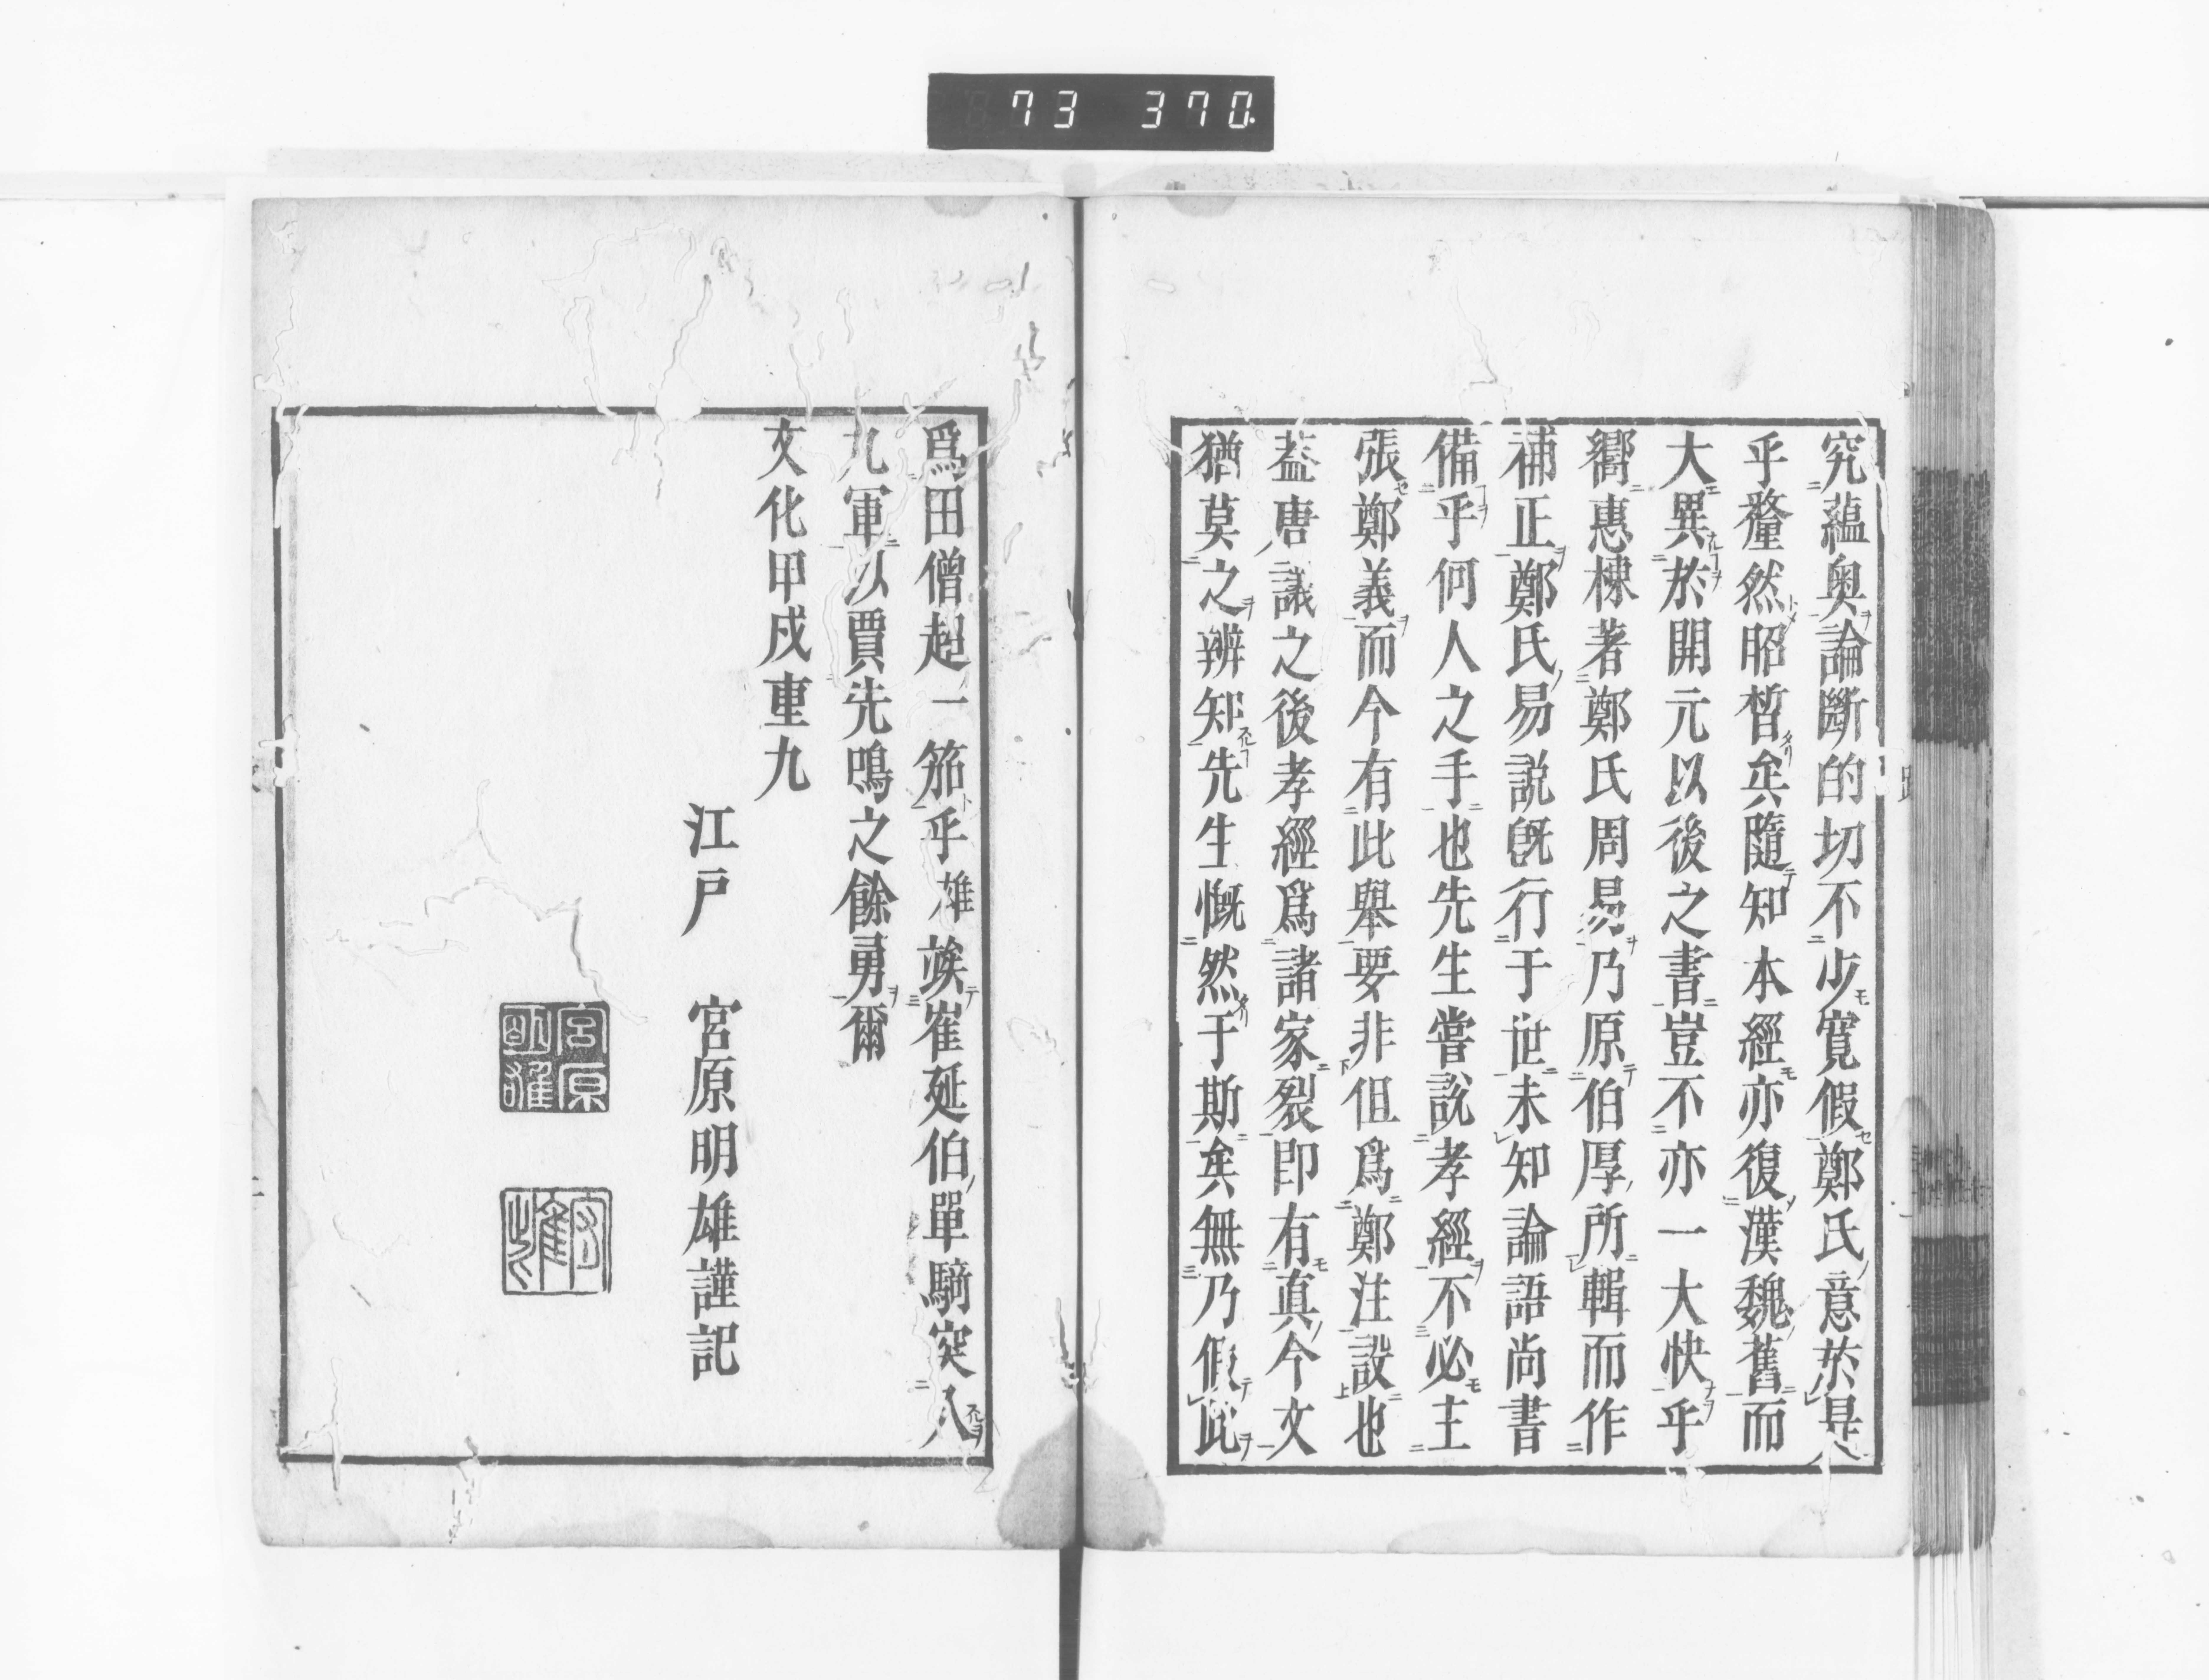 73 370.
究蘊奥論斷的切不少寛假鄭氏意於是
乎釐然昭晳矣隨知本經亦復漢魏舊而
大異於開元以後之書豈不亦一大快乎
嚮惠棟著鄭氏周易乃原伯厚所輯而作
補正鄭氏易説既行于世未知論語尚書
備乎何人之手也先生嘗説孝經不必主
張鄭義而今有此舉要非但爲鄭注設也
葢唐議之後孝經爲諸家裂即有真今文
猶莫之辨知先生慨然于斯矣無乃假此
爲田僧超一笳乎雄竢崔延伯單騎突入
九軍以賈先鳴之餘勇爾
文化甲戌重九
江戸 宮原明雄謹記
宮原
明雄